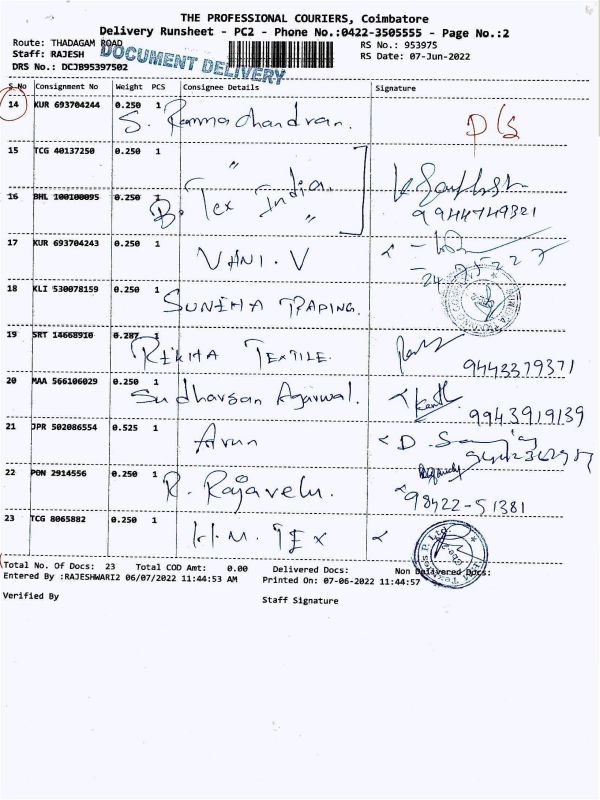 THE PROFESSIONAL COURIERS, Coimbatore
Delivery Runsheet - PC2 - Phone No.:0422-3505555 - Page No.:2
Route: THADAGAM ROAD
RS No.: 953975
Staff: RAJESH
RS Date: 07-Jun-2022
DRS No.: DCJB95397502
DOCUMENT DELIVERY
S.No Consignment No Weight PCS Consignee Details Signature
14 KUR 693704244 0.250 1 S. Ramachandran.
15 TCG 40137250 0.250 1 "
16 BHL 100100095 0.250 1 B. Tex India. "
9944749321
17 KUR 693704243 0.250 1 VANI. V
18 KLI 530078159 0.250 1 SUNEHA TRADING.
19 SRT 14668910 0.287 1 REKHA TEXTILE. 9443379371
20 MAA 566106029 0.250 1 Sudharsan Agarwal. 9943919139
21 JPR 502086554 0.525 1 Arun
22 PON 2914556 0.250 1 R. Rajavelu. 98422-51381
23 TCG 8065882 0.250 1 H.M. TEX
Total No. Of Docs: 23 Total COD Amt: 0.00 Delivered Docs: Non Delivered Docs:
Entered By :RAJESHWARI2 06/07/2022 11:44:53 AM Printed On: 07-06-2022 11:44:57
Verified By
Staff Signature